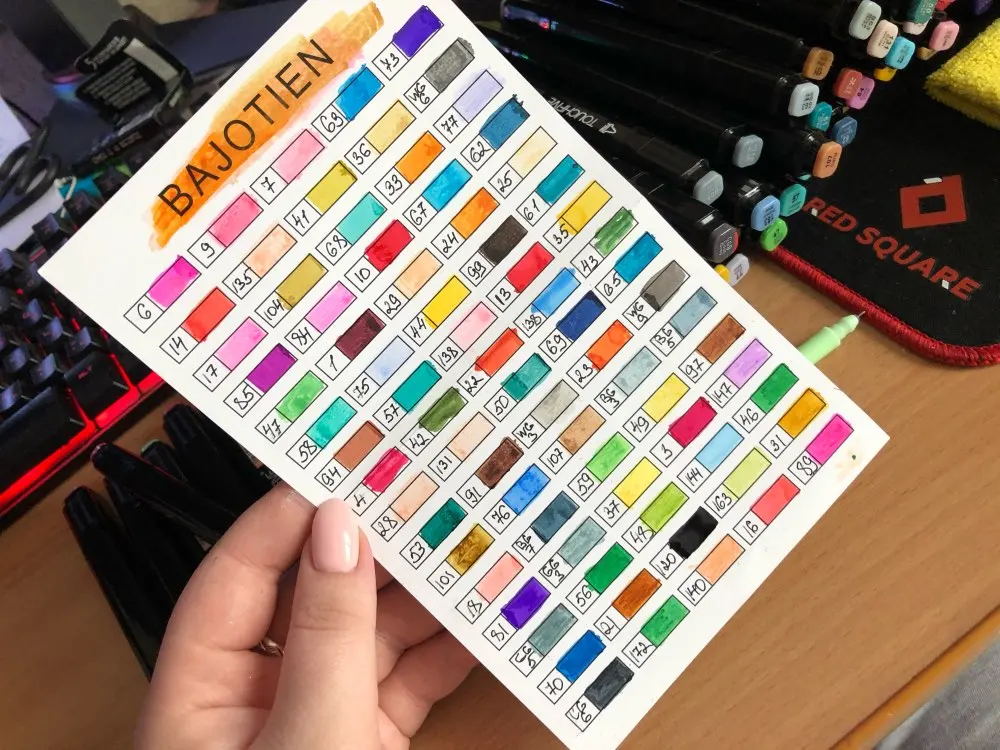 BAJOTIEN
6 9 7 63 73
14 135 41 36 WG6
17 104 68 33 77
85 84 10 67 62
47 1 29 24 25
58 75 44 99 61
94 57 138 13 35
4 42 22 138 43
28 131 50 69 65
53 91 WG3 23 WG
101 76 107 BG3 BG5
18 BG7 59 49 97
81 GG3 37 5 147
CG5 56 48 144 46
70 21 120 163 31
CG6 172 140 16 89
TOUCHFIVE
RED SQUARE